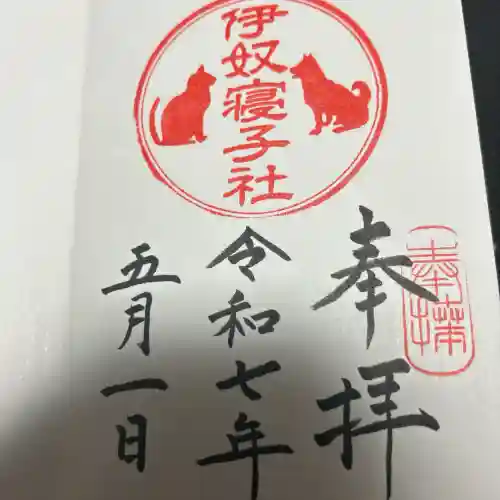 奉拝
奉拝
伊奴寝子社
令和七年
五月一日